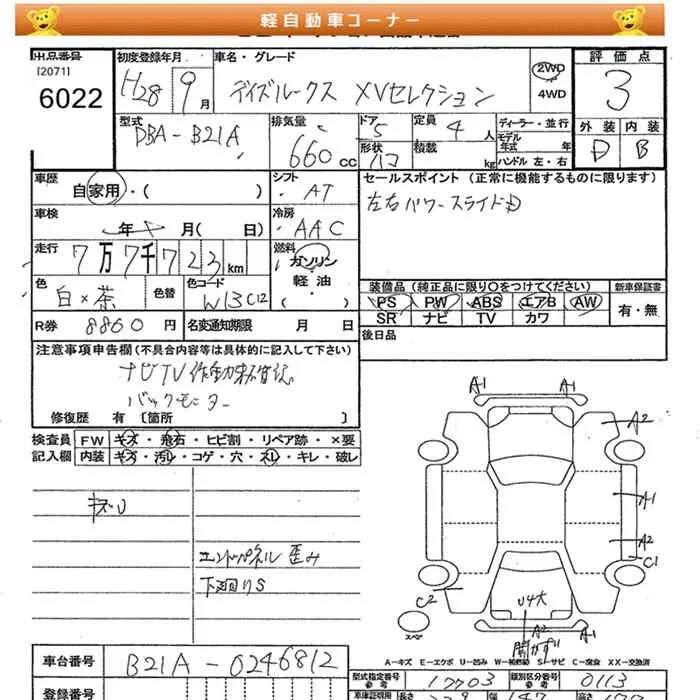 軽自動車コーナー
出品番号 初度登録年月 車名・グレード 評価点
[2071]
6022 H28 9月 デイズルークス XVセレクション 2WD 4WD 3
型式 排気量 ドア 定員 ディーラー・並行 外装 内装
DBA-B21A 660cc 5 4人 モデル年式 年 D B
形状 積載 kg ハンドル 左・右
車歴 自家用・( ) シフト AT セールスポイント (正常に機能するものに限ります)
車検 年 月( 日) 冷房 AAC 左右パワースライドD
走行 7万7千723km 燃料 ガソリン 軽油 ( )
色 白×茶 色替 色コード W13C12 装備品 (純正品に限り○をつけてください) 新車保証書
PS PW ABS エアB AW 有・無
SR ナビ TV カワ
R券 8860円 名変通知期限 月 日 後日品
注意事項申告欄 (不具合内容等は具体的に記入して下さい)
ナビTV作動未確認
バックモニター
修復歴 有 〔箇所 〕
検査員 FW キズ・飛石・ヒビ割・リペア跡・×要
記入欄 内装 キズ・汚レ・コゲ・穴・スレ・キレ・破レ
キズU
エンドパネル歪み
下廻りS
A1 A1
A2
A1
A2
C1
C2
U4大
スペア
A2 A1
A-キズ E-エクボ U-凹み W-補修跡 S-サビ C-腐食 XX-交換済
車台番号 B21A-0246812 型式指定番号 参考 17703 類別区分番号 参考 0113
登録番号 車庫証明用 参考 長さ 幅 高さ